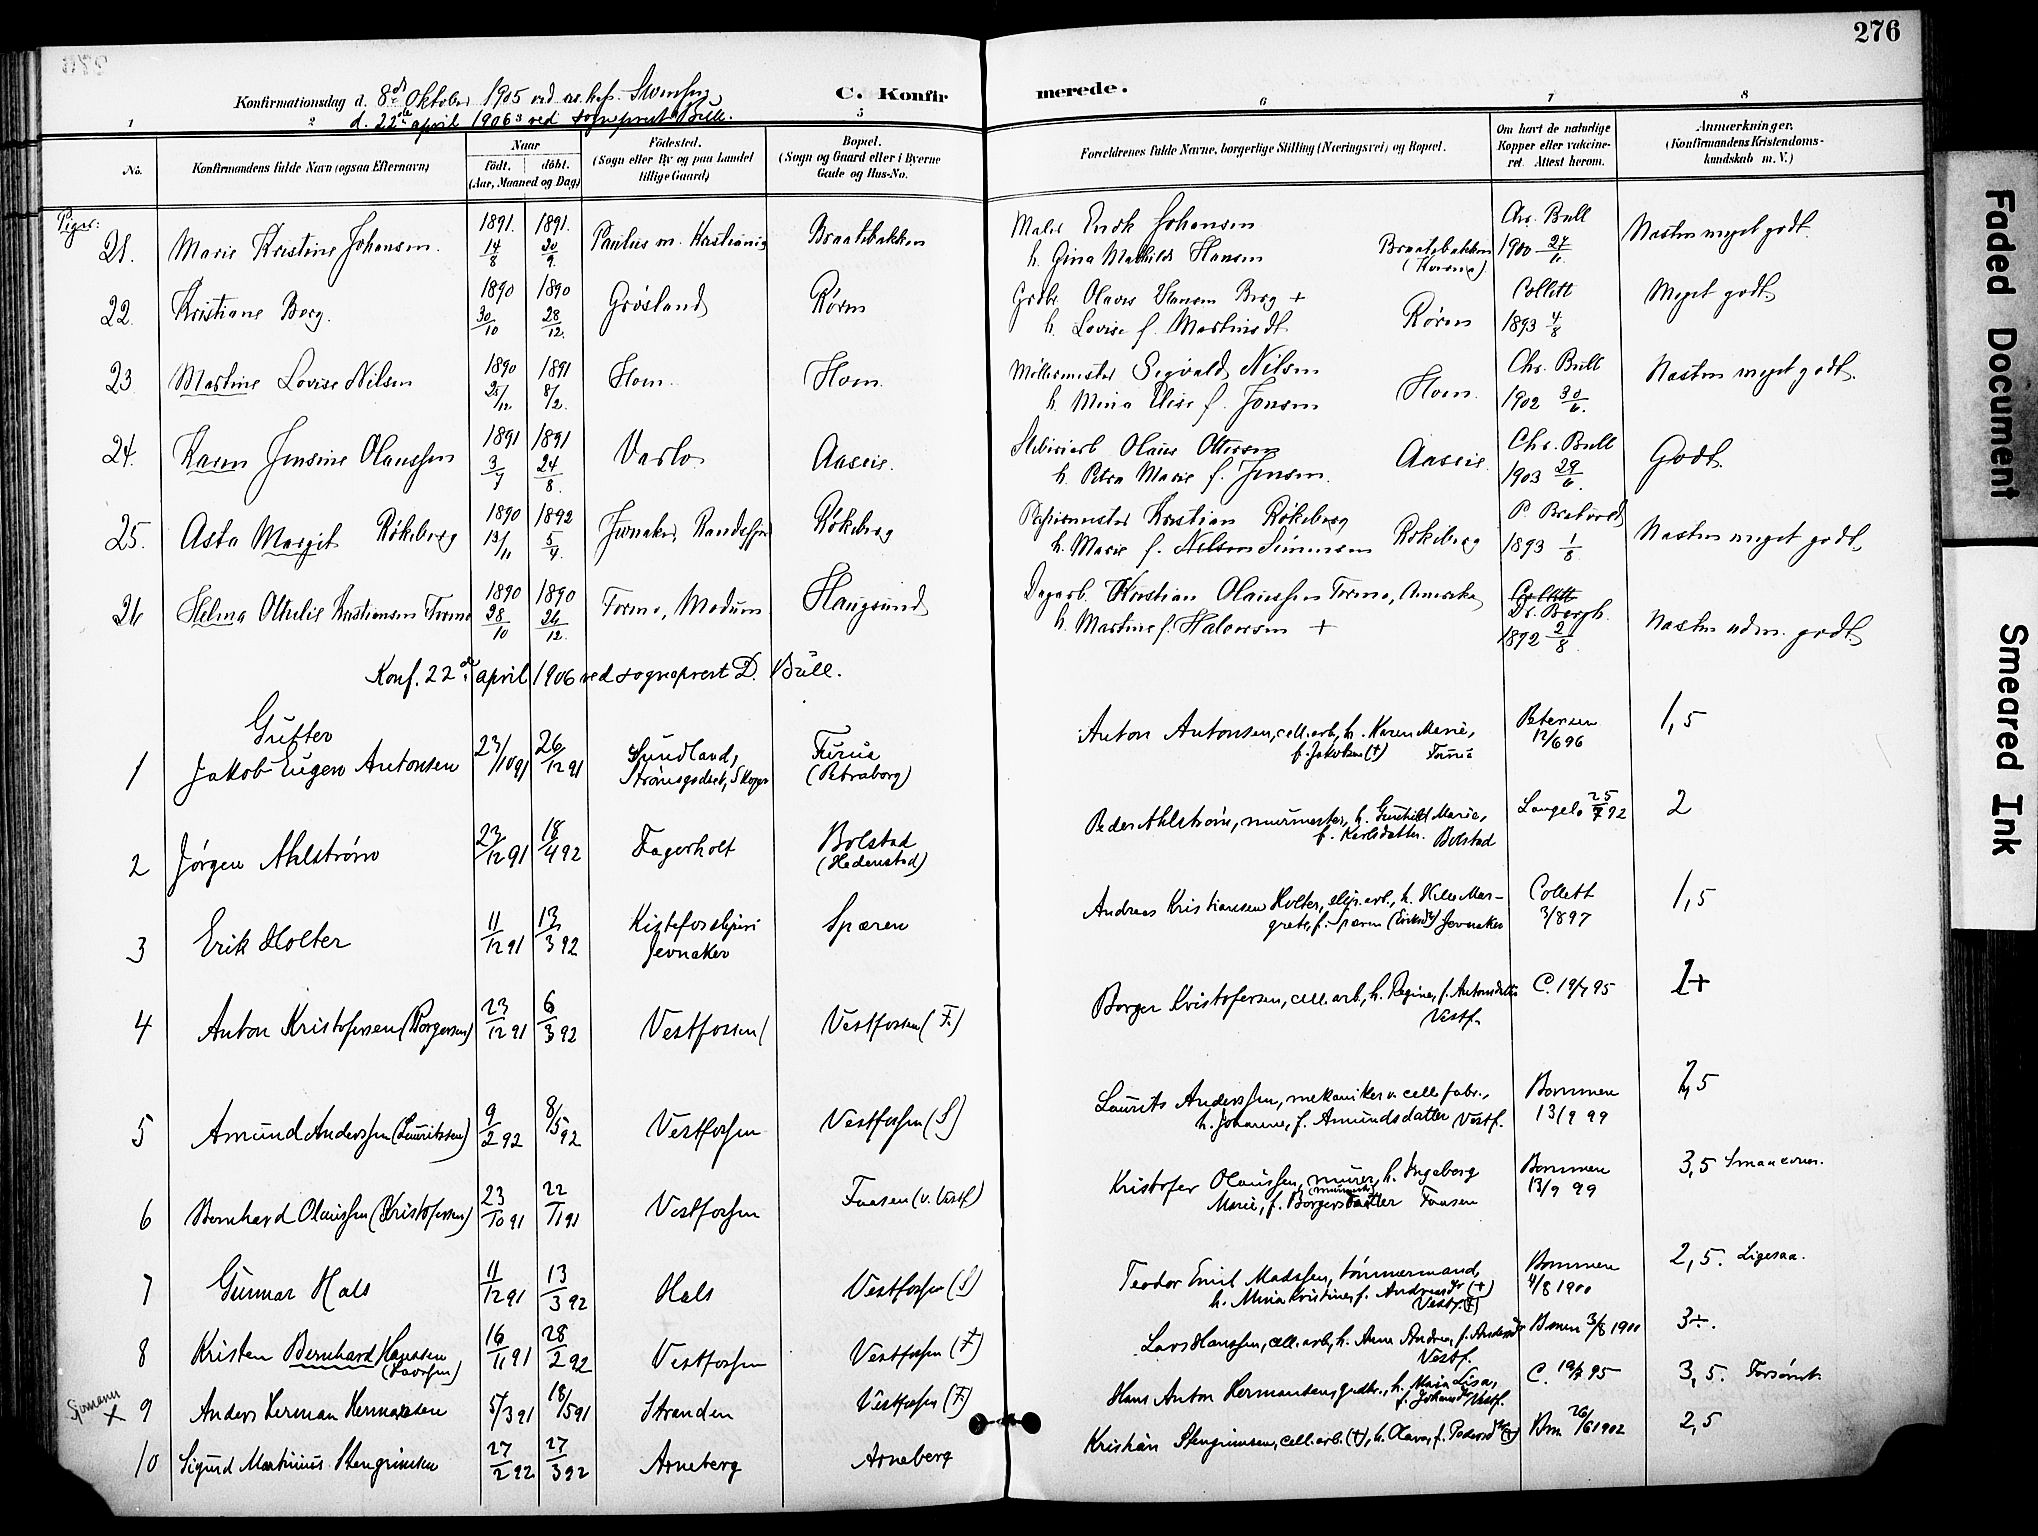 276
Konfirmationsdag d. 8de Oktober 1905 ved
d. 22de april 1906 ved sogneprest Bull.
C. Konfirmerede.
1 2 3 5 6 7 8
No. Konfirmandens fulde Navn (ogsaa Efternavn) Naar født. døbt. (Aar, Maaned og Dag) Fødested. (Sogn eller By og paa Landet tillige Gaard) Bopæl. (Sogn og Gaard eller i Byerne Gade og Hus-No. Forældrenes fulde Navne, borgerlige Stilling (Næringsvei) og Bopæl. Om havt de naturlige Kopper eller vaccineret. Attest herom. Anmerkninger. (Konfirmandens Kristendomskundskab m. V.)
Piger:
21. Marie Kristine Johansen. 1891. 14/8 1891. 20/9. Paulus m. Kristiania Braatabakken Maler Johansen h. Gina Mathilde Hansen Braatabakken Chr. Bull 1900 Næsten meget godt
22. Kristiane Berg. 1890 30/10 1890 28/12. Grøsland Røren Gdbr. Olaves Hansen Berg + h. Lovise f. Martinsdt. Røren Collett 1893 4/8 Meget godt.
23 Martine Lovise Nilsen 1890 25/12. 1891 8/2. Hom. Hom. Møllermester Sigvald Nilsen h. Mina Elise f. Jonsen Hom. Chr. Bull 1902 30/6. Næsten meget godt.
24. Karen Jensine Olaussen 1891 3/7 1891 24/8. Varlo Aaseie. Sliberiarb Olaus Ottersen h. Petra Marie f. Jensen. Aaseie. Chr. Bull 1903 29/6. Godt.
25. Asta Margit Røkeberg 1890 13/11 1892 5/4. Jevnaker, Randsfjord Røkeberg Kristian Røkeberg h. Marie f. Nilsen Simensen Røkeberg P. 1893 1/8 Næsten meget godt.
26 Helma Othelie Kristiansen Tormo 1890 28/10 1890 26/12. Tormo, Modum Haugsund Dagarb. Kristian Olaussen Tormo, Amerika h. Martine f. Halvorsen + Collett Dr. Bergh. 1892 2/8. Næsten udm. godt.
Konf. 22de april 1906 ved sogneprest D. Bull.
Gutter
1 Jakob Eugen Antonsen 23/10 91 26/12 91 Sundland, Strømsgodset, Skoger Furue (Petraborg) Anton Antonsen, cell.arb, h. Karen Marie, f. Jakobsen (+) Furue Petersen 12/6 96 1,5
2 Jørgen Ahlstrøm 23/12 91 18/4 92 Fagerholt Bolstad (Hedenstad) Peder Ahlstrøm, murmester, h. Gunhild Marie, f. Karlsdatter. Bolstad Langelo 25/7 92 2
3 Erik Holter 11/12 91 13/3 92 Kistefossliperi Jevnaker Spæren Andreas Kristiansen Holter, slip.arb., h. Margrete, f. Spæren (Eriksdt) Jevnaker Collett 3/8 97 1,5
4 Anton Kristofersen (Borgersen) 23/12 91 6/3 92 Vestfossen Vestfossen (F.) Borger Kristofersen, cell.arb, h. Regine, f. Antonsdatter Vestf. C. 19/7 95 1+
5 Amund Anderssen (Lauritssen) 9/2 92 8/5 92 Vestfossen Vestfossen (S) Laurits Anderssen, mekaniker v. cell fabr., h. Johanne, f. Amundsdatter Vestf. Bommen 13/9 99 2,5
6 Bernhard Olaussen (Kristofersen) 23/10 91 22/11 91 Vestfossen Faasen (v. Vestf) Kristofer Olaussen, murer, h. Ingeborg Marie, f. Borgersdatter Faasen Bommen 13/9 99 3,5
7 Gunnar Hals 11/12 91 13/3 92 Hals Vestfossen (S) Teodor Emil Madssen, tømmermand, h. Mina Kristine, f. Andreasdr (+) Vestf. (F) Bommen 4/8 1900 2,5. Ligesaa.
8 Kristen Bernhard Hanssen (Larssen) 16/11 91 28/2 92 Vestfossen Vestfossen (F) Lars Hanssen, cell.arb, h. Anne Andrea, f. Andersdr Vestf. Bmen 3/8 1900 3÷.
Sjømann
x 9 Anders Herman Hermansen 5/3 91 18/5 91 Stranden Vestfossen (F.) Hans Anton Hermansen, gadbr., h. Maia Lisa, f. Johansdr Vestf. C. 19/7 95 3,5. Forsømt.
10 Sigurd Martinius Stengrimsen 27/2 92 27/3 92 Arneberg Arneberg Kristian Stengrimsen, cell.arb. (+), h. Olava, f. Pedersdtr (+) Bm 26/6 1902 2,5
Faded Document
Smeared Ink